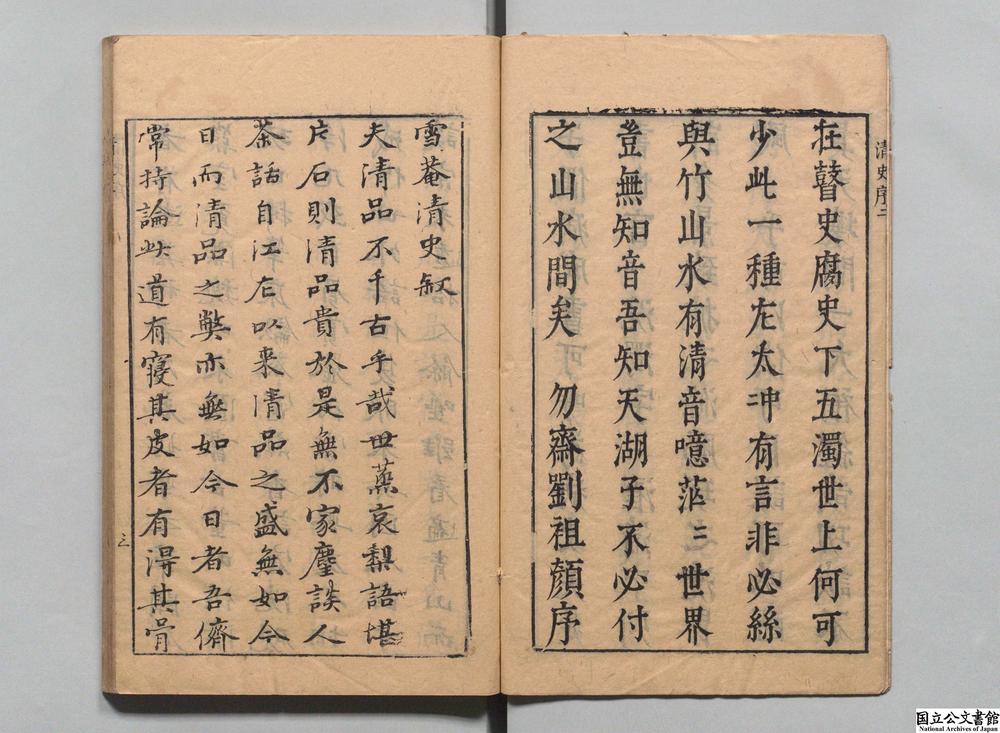 清史序二
在瞽史腐史下五濁世上何可
少此一種左太冲有言非必絲
與竹山水有清音噫茫〻世界
豈無知音吾知天湖子不必付
之山水間矣 勿齋劉祖顏序
雪菴清史叙
夫清品不千古乎哉世蒸哀梨語堪
片石則清品貴於是無不家麈談人
茶話自江左以来清品之盛無如今
日而清品之獘亦無如今日者吾儕
常持論此道有寢其皮者有得其骨
三
国立公文書館
National Archives of Japan